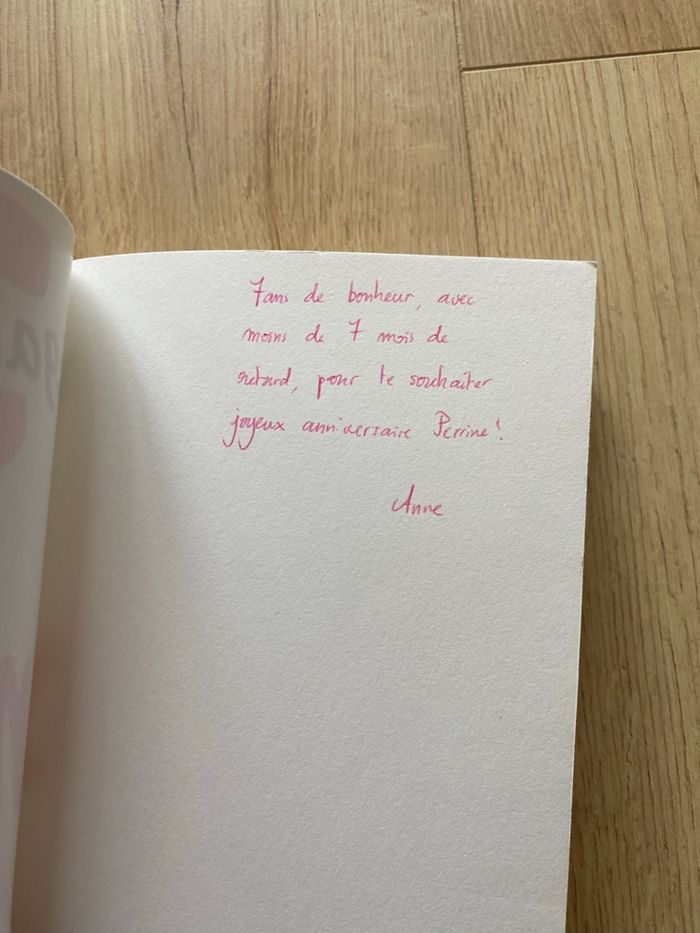 7 ans de bonheur, avec
moins de 7 mois de
retard, pour te souhaiter
joyeux anniversaire Perrine !
Anne